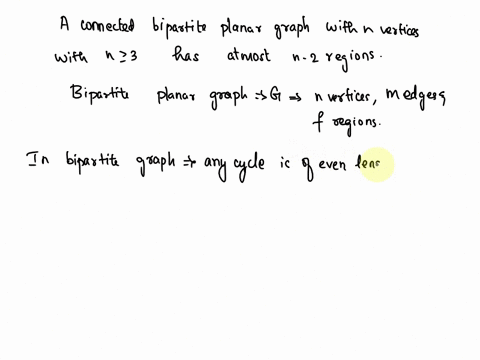 A connected bipartite planar graph with n vertices
with n ≥ 3 has atmost n-2 regions.
Bipartite planar graph → G ⇒ n vertices, m edges
f regions.
In bipartite graph → any cycle is of even leng